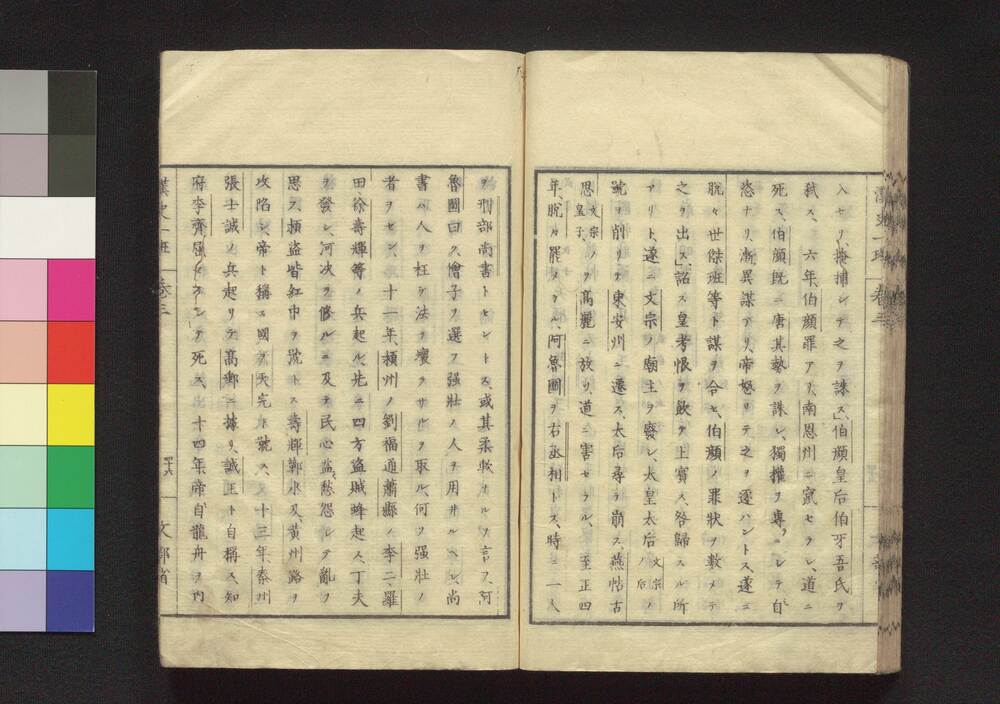 入セリ、掩捕シテ之ヲ誅ス、」伯顔皇后伯牙吾氏ヲ
弑ス、 六年、伯顔罪アリ、南恩州ニ竄セラレ、道ニ
死ス、伯顔既ニ唐其勢ヲ誅シ、獨權ヲ專ニシテ自
恣ナリ、漸異謀アリ、帝怒リテ之ヲ逐ハントス遂ニ
脱々世傑班等ト謀ヲ合セ、伯顔ノ罪状ヲ數メテ
之ヲ出ス、」詔ス皇考恨ヲ飲テ上賓ス、咎歸スル所
アリト、遂ニ文宗ノ廟主ヲ廢シ、太皇太后ノ文宗ノ后
號ヲ削リテ東安州ニ遷ス、太后尋テ崩ス燕帖古
思文宗ノ皇子、ヲ高麗ニ放リ、道ニ害セラル、 至正四
年、脱々罷メラル、阿魯圖ヲ右丞相トス、時ニ一人
ヲ刑部尚書トセントス、或其柔軟ナルヲ言フ、阿
魯圖曰ク、儈子ヲ選フ强壯ノ人ヲ用井ルヘシ、尚
書ハ人ヲ枉ケ法ヲ壞ラサルヲ取ル、何ソ强壯ノ
者ヲセン、 十一年、潁州ノ劉福通蕭縣ノ李二、羅
田、徐壽輝等ノ兵起ル、先ニ四方盜賊蜂起ス、丁夫
ヲ發シ、河次ヲ修ルニ及テ民心益愁怨シテ亂ヲ
思フ、潁盜皆紅巾ヲ號トス壽輝蘄水及黄州路ヲ
攻陷シ、帝ト稱ス國ヲ天完ト號ス、 十三年、泰州
張士誠ノ兵起リテ高郵ニ據リ、誠王ト自稱ス、知
府李齊屈セスシテ死ス、 十四年帝自龍舟ヲ内
漢史一班 卷三 四十六 文部省